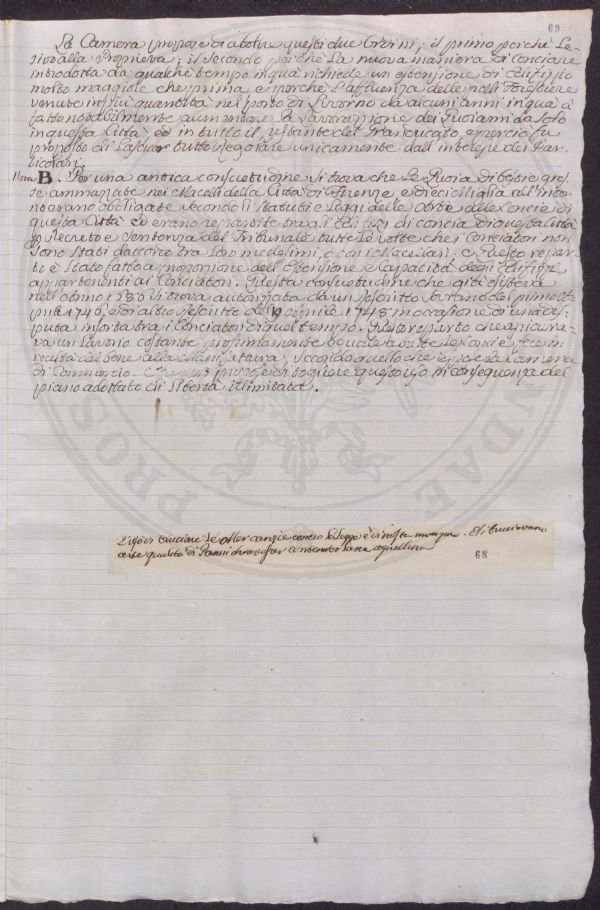 69
La Camera propose di abolire questi due Ordini; il primo perchè Le-
sivo alla Proprieta; il secondo perchè La nuova maniera di Conciare
introdotta da qualche tempo in quà richiede un estensione di Edifizio
molto maggiore che prima e perchè L'affluenza delle pelli forestiere
venute in più quantità nel porto di Livorno da alcuni anni in quà à
fatto notabilmente aumentare la Lavorazione dei Cuoiami da Solo
in questa Città, ed in tutto il restante del Granducato, e perciò fu
proposto di Lasciar tutto regolare unicamente dall'interesse dei Par-
ticolari.
Nota B. Per una antica consuetudine si trova che Le Cuoia di bestie gros-
se ammazzate nei Macelli della Città di Firenze, e dieci miglia all'Intor-
no erano obbligate secondo li Statuti e Leggi delle Arti alle Concie di
questa Città ed erano repartite tra gli Edifizi di concia di questa Città
p Decreto e Sentenza del Tribunale tutte Le volte che i Conciatori non
sono stati d'accordo tra Loro medesimi, o con i Macellari: e questo repar-
to è stato fatto a proporzione dell'Estensione e Capacità degli Edifizi
appartenenti ai Conciatori. Questa consuetudine che già esisteva
nell'anno si trova autorizzata da un rescritto Sovrano del primo
1746, ed altro rescritto de 9 1748 in occasione di una dis-
puta insorta tra i Conciatori di quel tempo. Questo reparto che assicura-
va un Lavoro costante a tutte Le Concie fece in
realtà del bene alla Manifattura, secondo quello che espose La Camera
di Commercio. propose di togliere questo uso in conseguenza del
piano adottato di Libertà illimitata.
L'uso di bruciare Le Mercanzie contro La Legge è di molte
arte qualità di Panni
68